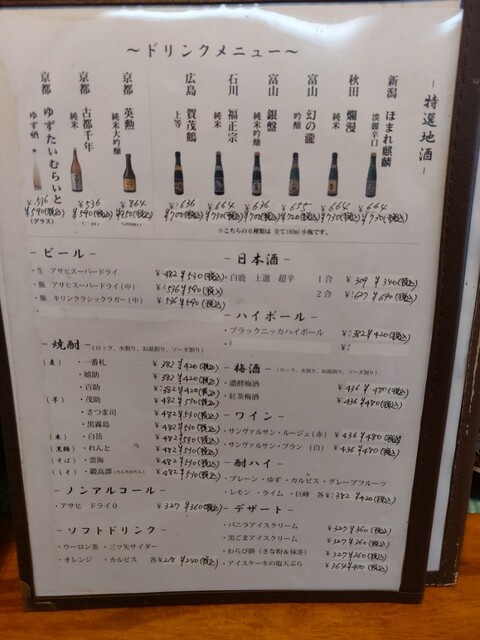 ～ドリンクメニュー～
－特選地酒－
新潟 ほまれ麒麟 淡麗辛口
¥664 ¥730(税込)
秋田 爛漫 純米
¥664 ¥730(税込)
富山 幻の瀧 吟醸
¥655 ¥720(税込)
富山 銀盤 純米吟醸
¥636 ¥700(税込)
石川 福正宗 純米
¥664 ¥730(税込)
広島 賀茂鶴 上等
¥636 ¥700(税込)
京都 英勲 純米大吟醸
¥864 ¥950(税込)
京都 古都千年 純米
¥536 ¥590(税込)
京都 ゆずたいむらいと ゆず酒
¥536 ¥590(税込)
(グラス)
※こちらの6種類は 全て180ml小瓶です。
－ビール－
・生 アサヒスーパードライ ¥482 ¥530(税込)
・瓶 アサヒスーパードライ(中) ¥536 ¥590(税込)
・瓶 キリンクラシックラガー(中) ¥536 ¥590(税込)
－焼酎－ (ロック、水割り、お湯割り、ソーダ割り)
(麦) ・一番札 ¥382 ¥420(税込)
・娘助 ¥382 ¥420(税込)
・百助 ¥382 ¥420(税込)
(芋) ・茂助 ¥482 ¥530(税込)
・さつま司 ¥482 ¥530(税込)
・黒霧島 ¥482 ¥530(税込)
(米) ・白岳 ¥482 ¥530(税込)
(黒糖) ・れんと ¥482 ¥530(税込)
(そば) ・雲海 ¥482 ¥530(税込)
(しそ) ・鍛高譚(たんたかたん) ¥482 ¥530(税込)
－ノンアルコール－
・アサヒ ドライ0 ¥327 ¥360(税込)
－ソフトドリンク－
・ウーロン茶 ・三ツ矢サイダー
・オレンジ ・カルピス 各¥218 ¥240(税込)
－日本酒－
・白鹿 上選 超辛 1合 ¥309 ¥340(税込)
2合 ¥627 ¥690(税込)
－ハイボール－
・ブラックニッカハイボール ¥382 ¥420(税込)
－梅酒－ (ロック、水割り、お湯割り、ソーダ割り)
・濃醇梅酒 ¥436 ¥480(税込)
・紅茶梅酒 ¥436 ¥480(税込)
－ワイン－
・サンヴァルサン・ルージュ(赤) ¥436 ¥480(税込)
・サンヴァルサン・ブラン(白) ¥436 ¥480(税込)
－酎ハイ－
・プレーン・ゆず・カルピス・グレープフルーツ
・レモン・ライム・巨峰 各¥382 ¥420(税込)
－デザート－
・バニラアイスクリーム ¥327 ¥360(税込)
・黒ごまアイスクリーム ¥327 ¥360(税込)
・わらび餅(きな粉&抹茶) ¥327 ¥360(税込)
・アイスケーキの塩天ぷら ¥364 ¥400(税込)